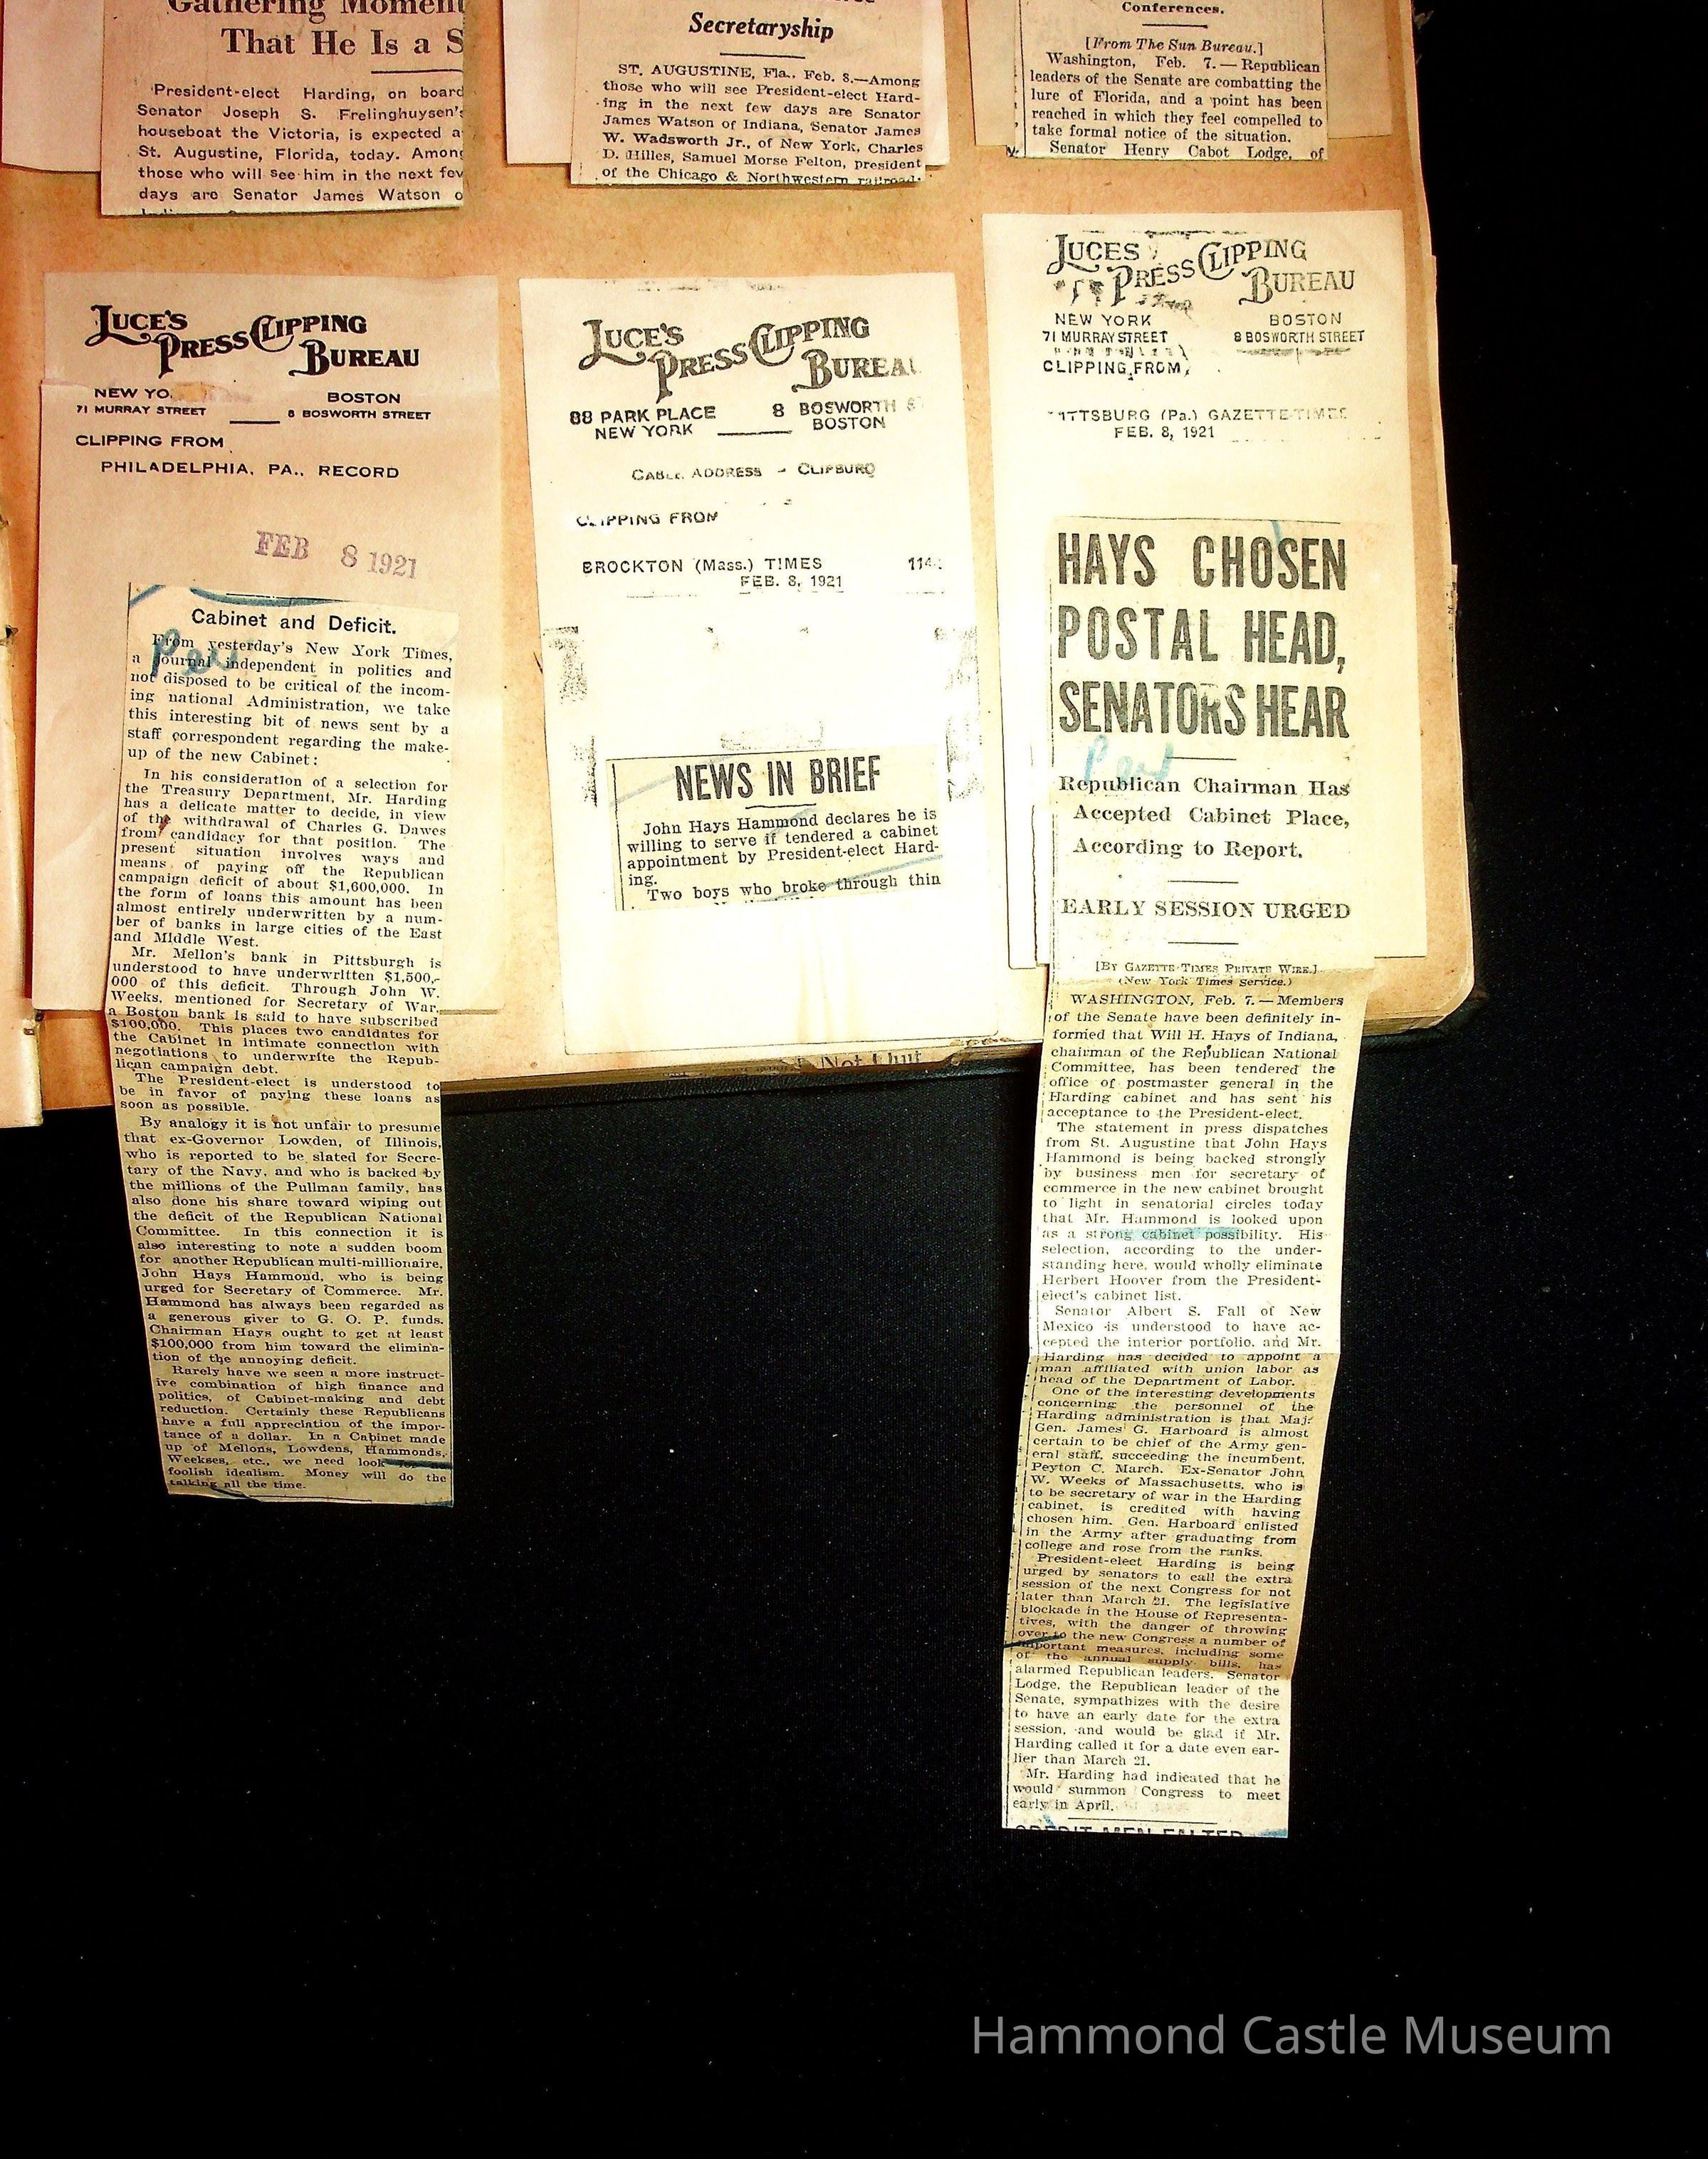 Gathering Moment
That He Is a S
President-elect Harding, on board
Senator Joseph S. Frelinghuysen's
houseboat the Victoria, is expected a
St. Augustine, Florida, today. Among
those who will see him in the next few
days are Senator James Watson o
Secretaryship
ST. AUGUSTINE, Fla., Feb. 8.—Among
those who will see President-elect Hard-
ing in the next few days are Senator
James Watson of Indiana, Senator James
W. Wadsworth Jr., of New York, Charles
D. Hilles, Samuel Morse Felton, president
of the Chicago & Northwestern railroad;
Conferences.
[From The Sun Bureau.]
Washington, Feb. 7.—Republican
leaders of the Senate are combatting the
lure of Florida, and a point has been
reached in which they feel compelled to
take formal notice of the situation.
Senator Henry Cabot Lodge, of
LUCE'S PRESS CLIPPING BUREAU
NEW YO
BOSTON
71 MURRAY STREET
8 BOSWORTH STREET
CLIPPING FROM
PHILADELPHIA, PA., RECORD
FEB 8 1921
Cabinet and Deficit.
From yesterday's New York Times,
a journal independent in politics and
not disposed to be critical of the incom-
ing national Administration, we take
this interesting bit of news sent by a
staff correspondent regarding the make-
up of the new Cabinet:
In his consideration of a selection for
the Treasury Department, Mr. Harding
has a delicate matter to decide, in view
of the withdrawal of Charles G. Dawes
from candidacy for that position. The
present situation involves ways and
means of paying off the Republican
campaign deficit of about $1,600,000. In
the form of loans this amount has been
almost entirely underwritten by a num-
ber of banks in large cities of the East
and Middle West.
Mr. Mellon's bank in Pittsburgh is
understood to have underwritten $1,500,-
000 of this deficit. Through John W.
Weeks, mentioned for Secretary of War,
a Boston bank is said to have subscribed
$100,000. This places two candidates for
the Cabinet in intimate connection with
negotiations to underwrite the Repub-
lican campaign debt.
The President-elect is understood to
be in favor of paying these loans as
soon as possible.
By analogy it is not unfair to presume
that ex-Governor Lowden, of Illinois,
who is reported to be slated for Secre-
tary of the Navy, and who is backed by
the millions of the Pullman family, has
also done his share toward wiping out
the deficit of the Republican National
Committee. In this connection it is
also interesting to note a sudden boom
for another Republican multi-millionaire,
John Hays Hammond, who is being
urged for Secretary of Commerce. Mr.
Hammond has always been regarded as
a generous giver to G. O. P. funds.
Chairman Hays ought to get at least
$100,000 from him toward the elimina-
tion of the annoying deficit.
Rarely have we seen a more instruct-
ive combination of high finance and
politics, of Cabinet-making and debt
reduction. Certainly these Republicans
have a full appreciation of the impor-
tance of a dollar. In a Cabinet made
up of Mellons, Lowdens, Hammonds,
Weekses, etc., we need look
foolish idealism. Money will do the
talking all the time.
LUCE'S PRESS CLIPPING BUREAU
88 PARK PLACE
NEW YORK
8 BOSWORTH
BOSTON
CABLE ADDRESS - CLIPBURO
CLIPPING FROM
BROCKTON (Mass.) TIMES
FEB. 8, 1921
NEWS IN BRIEF
John Hays Hammond declares he is
willing to serve if tendered a cabinet
appointment by President-elect Hard-
ing.
Two boys who broke through thin
LUCE'S PRESS CLIPPING BUREAU
NEW YORK
BOSTON
71 MURRAY STREET
8 BOSWORTH STREET
CLIPPING FROM
PITTSBURG (Pa.) GAZETTE-TIMES
FEB. 8, 1921
HAYS CHOSEN
POSTAL HEAD,
SENATORS HEAR
Republican Chairman Has
Accepted Cabinet Place,
According to Report.
EARLY SESSION URGED
[BY GAZETTE-TIMES PRIVATE WIRE.]
(New York Times Service.)
WASHINGTON, Feb. 7.—Members
of the Senate have been definitely in-
formed that Will H. Hays of Indiana,
chairman of the Republican National
Committee, has been tendered the
office of postmaster general in the
Harding cabinet and has sent his
acceptance to the President-elect.
The statement in press dispatches
from St. Augustine that John Hays
Hammond is being backed strongly
by business men for secretary of
commerce in the new cabinet brought
to light in senatorial circles today
that Mr. Hammond is looked upon
as a strong cabinet possibility. His
selection, according to the under-
standing here, would wholly eliminate
Herbert Hoover from the President-
elect's cabinet list.
Senator Albert S. Fall of New
Mexico is understood to have ac-
cepted the interior portfolio, and Mr.
Harding has decided to appoint a
man affiliated with union labor as
head of the Department of Labor.
One of the interesting developments
concerning the personnel of the
Harding administration is that Maj.
Gen. James G. Harboard is almost
certain to be chief of the Army gen-
eral staff, succeeding the incumbent,
Peyton C. March. Ex-Senator John
W. Weeks of Massachusetts, who is
to be secretary of war in the Harding
cabinet, is credited with having
chosen him. Gen. Harboard enlisted
in the Army after graduating from
college and rose from the ranks.
President-elect Harding is being
urged by senators to call the extra
session of the next Congress for not
later than March 21. The legislative
blockade in the House of Representa-
tives, with the danger of throwing
over to the new Congress a number of
important measures, including some
of the annual supply bills, has
alarmed Republican leaders. Senator
Lodge, the Republican leader of the
Senate, sympathizes with the desire
to have an early date for the extra
session, and would be glad if Mr.
Harding called it for a date even ear-
lier than March 21.
Mr. Harding had indicated that he
would summon Congress to meet
early in April.
Hammond Castle Museum